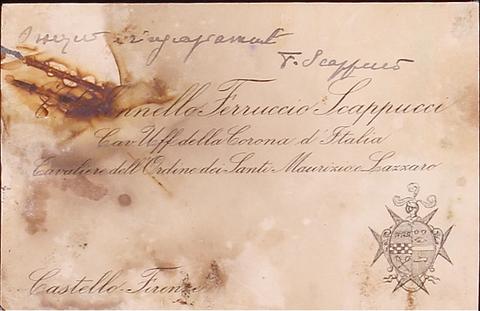 ringraziamenti
F. Scappucci
Ferruccio Scappucci
Cav. Uff. della Corona d'Italia
Cavaliere dell'Ordine dei Santi Maurizio e Lazzaro
Castello-Firenze